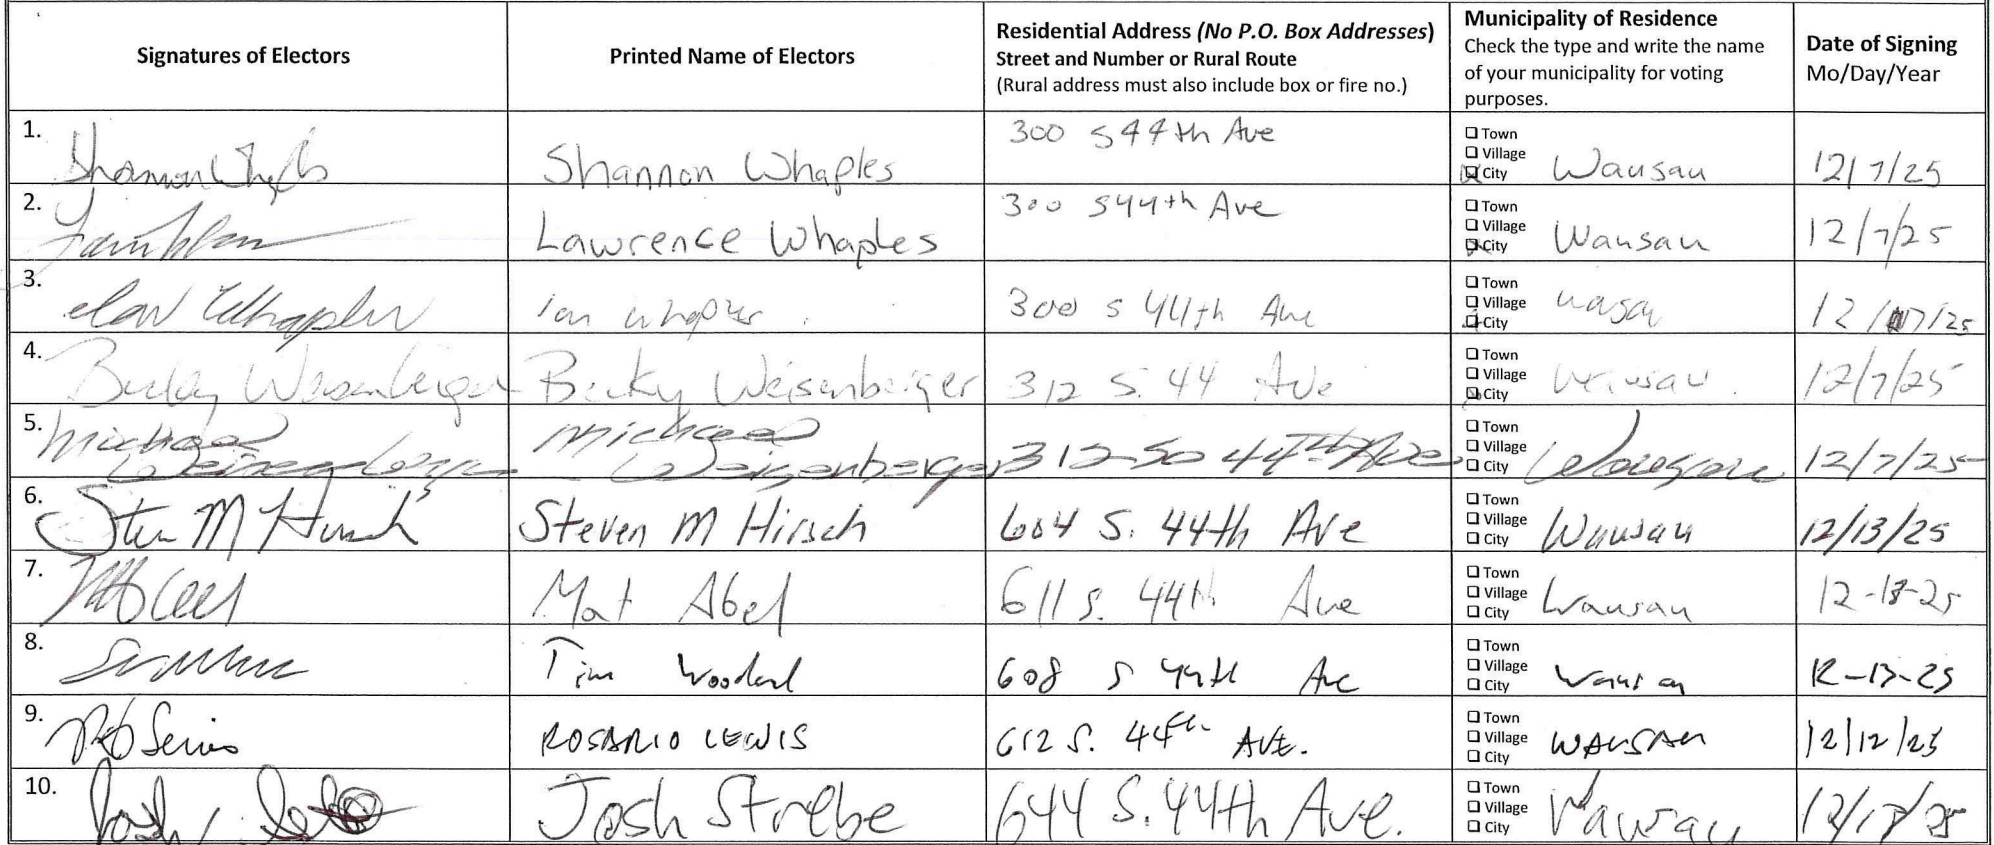 Signatures of Electors
Printed Name of Electors
Residential Address (No P.O. Box Addresses)
Street and Number or Rural Route
(Rural address must also include box or fire no.)
Municipality of Residence
Check the type and write the name
of your municipality for voting
purposes.
Date of Signing
Mo/Day/Year
1. Shannon Whaples 300 S 44th Ave
☐ Town
☐ Village
☒ City Wausau 12/7/25
2. Lawrence Whaples 300 S 44th Ave
☐ Town
☐ Village
☒ City Wausau 12/7/25
3. Ian Whaples Ian Whaples 300 S 44th Ave
☐ Town
☐ Village
☒ City 12/7/25
4. Becky Weisenberger Becky Weisenberger 312 S. 44 Ave
☐ Town
☐ Village
☒ City Wausau 12/7/25
5. Michael Weisenberger Michael Weisenberger 312 So 44TH Ave
☐ Town
☐ Village
☐ City Wausau 12/7/25
6. Steven M Hirsch 604 S. 44th Ave
☐ Town
☐ Village
☐ City Wausau 12/13/25
7. Mat Abel 611 S. 44th Ave
☐ Town
☐ Village
☐ City Wausau 12-13-25
8. Tim 608 S 44th Ave
☐ Town
☐ Village
☐ City Wausau 12-13-25
9. ROSARIO LEWIS 612 S. 44th AVE.
☐ Town
☐ Village
☐ City WAUSAU
10. Josh Josh Strebe 644 S. 44th Ave.
☐ Town
☐ Village
☐ City Wausau